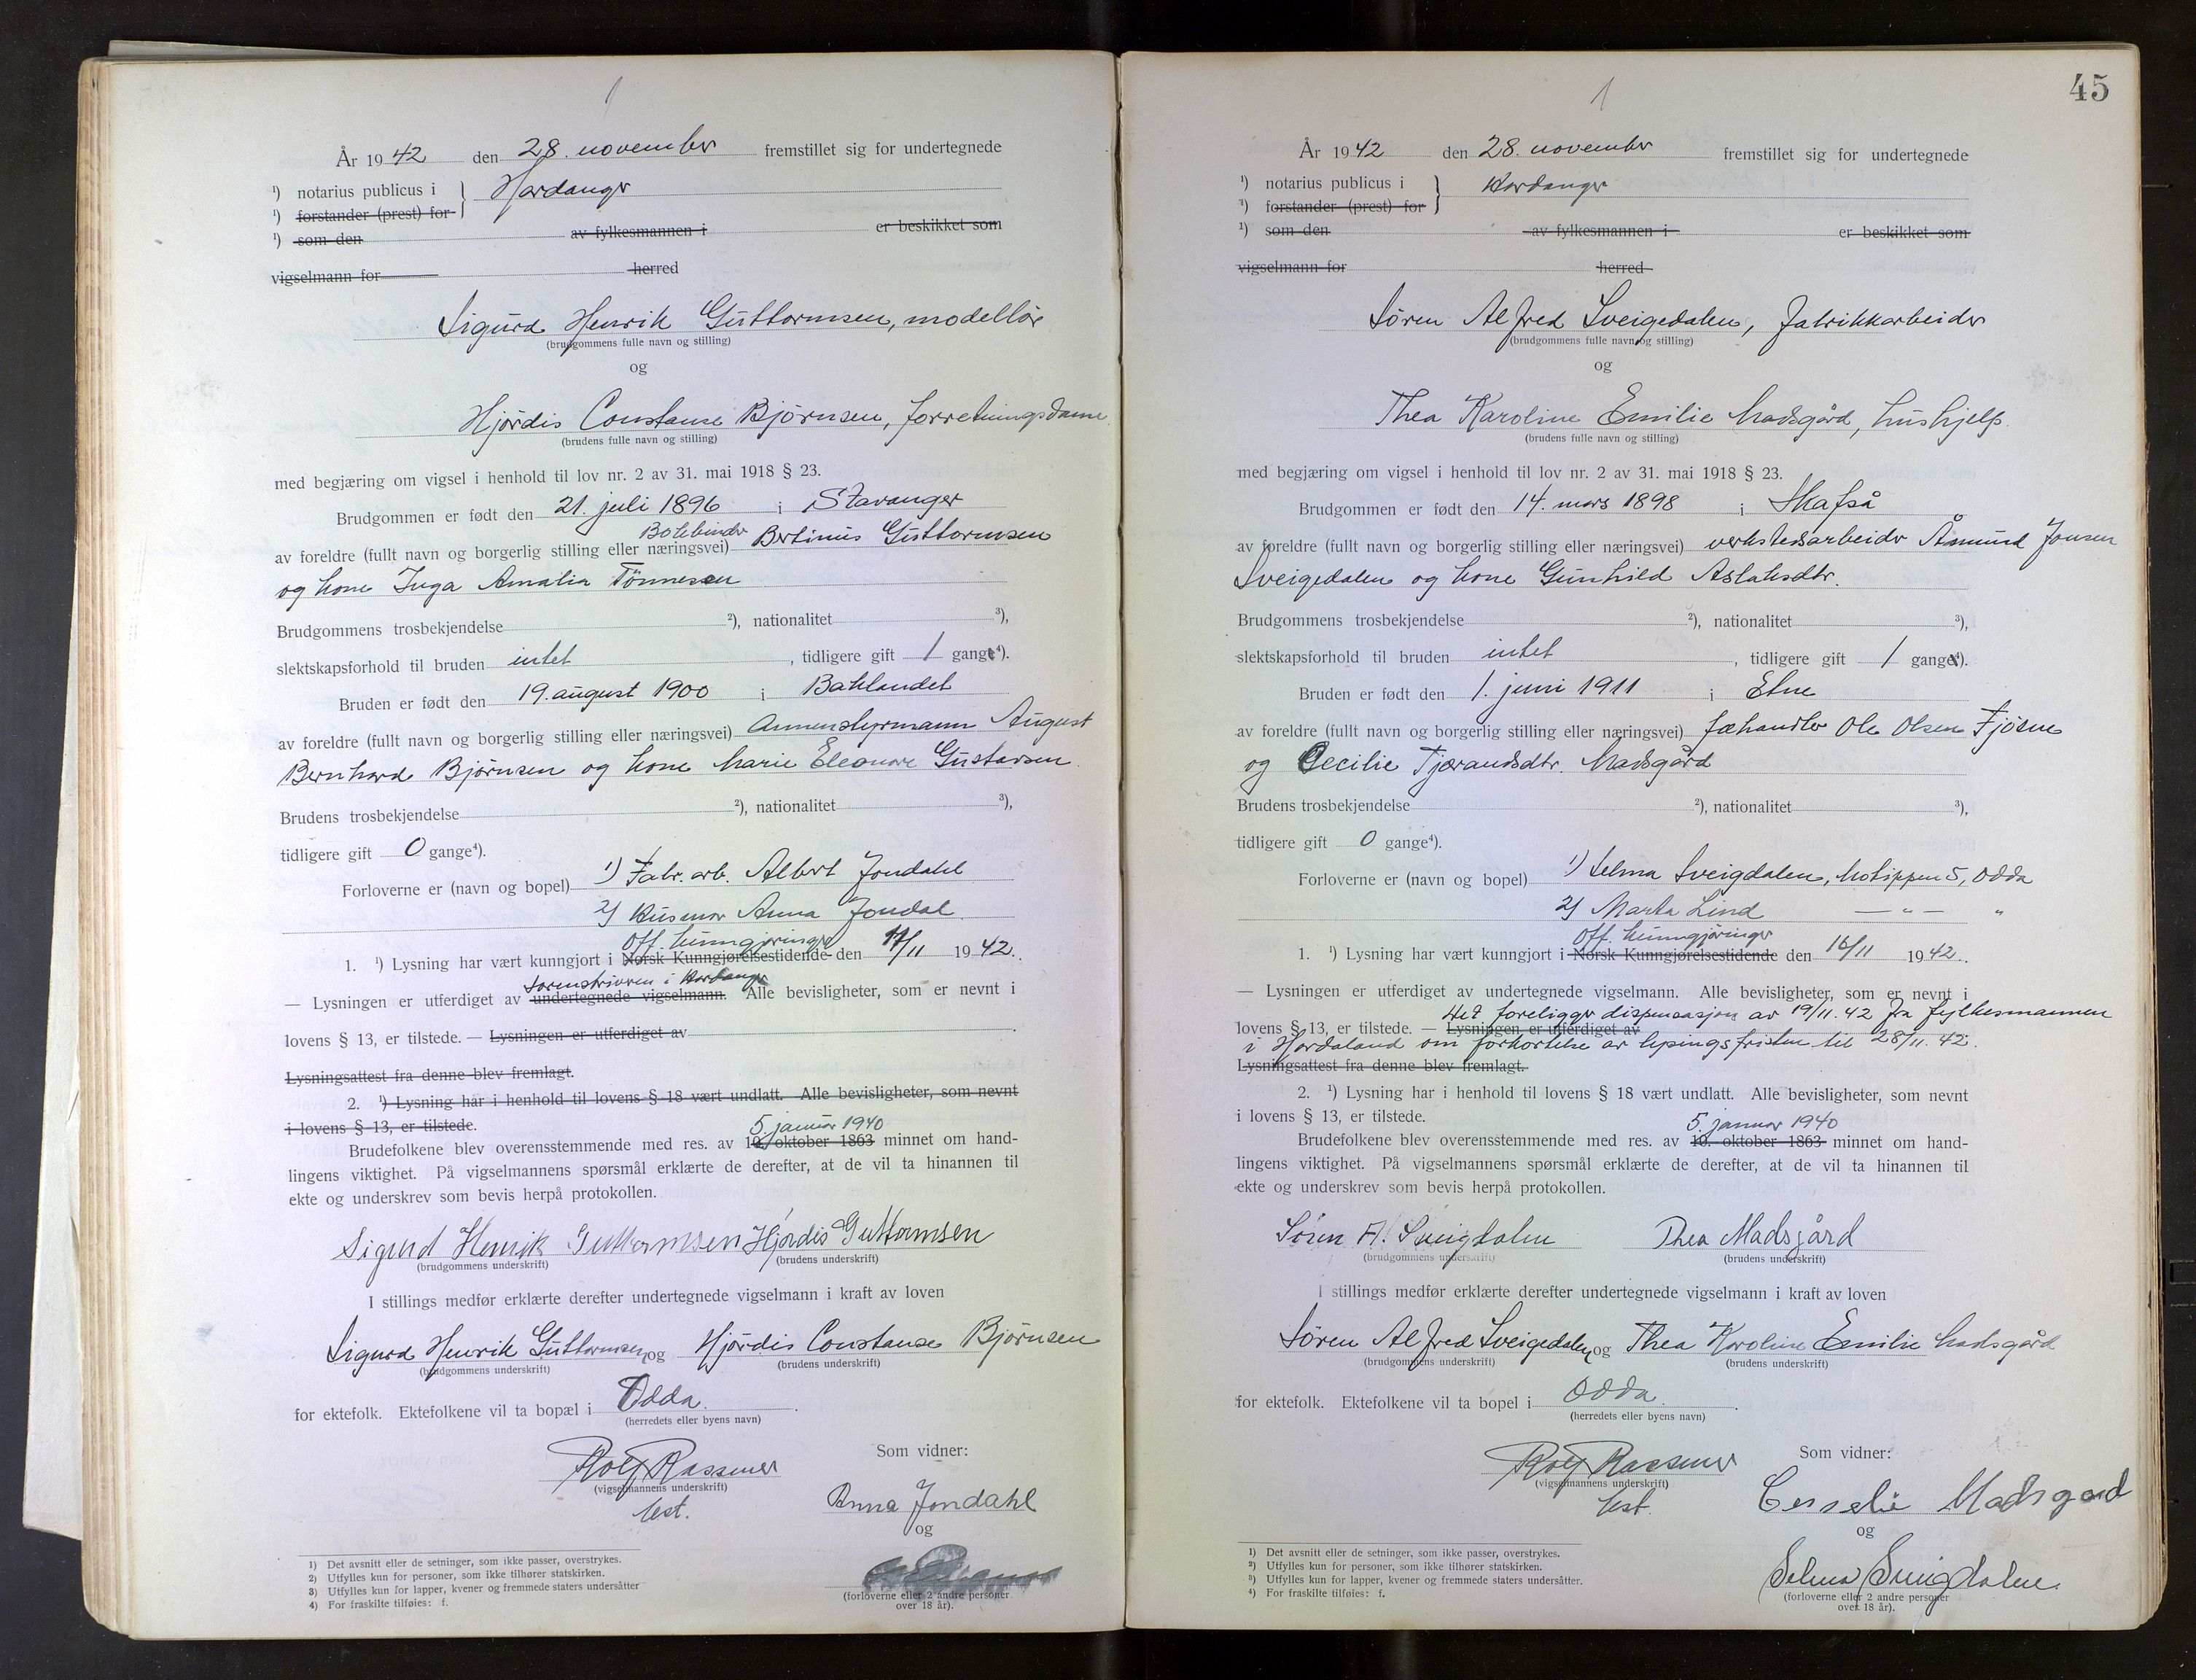 1
År 1942 den 28. november fremstillet sig for undertegnede
¹) notarius publicus i } Hardanger
¹) forstander (prest) for
¹) som den av fylkesmannen i er beskikket som
vigselmann for herred
Sigurd Henrik Guttormsen, modellør
(brudgommens fulle navn og stilling)
og
Hjørdis Constanse Bjørnsen, forretningsdame
(brudens fulle navn og stilling)
med begjæring om vigsel i henhold til lov nr. 2 av 31. mai 1918 § 23.
Brudgommen er født den 21. juli 1896 i Stavanger
av foreldre (fullt navn og borgerlig stilling eller næringsvei) Bokbinder Bertinius Guttormsen
og kone Inga Amalia Tönnesen
Brudgommens trosbekjendelse ²), nationalitet ³),
slektskapsforhold til bruden intet, tidligere gift 1 gange⁴).
Bruden er født den 19. august 1900 i Baklandet
av foreldre (fullt navn og borgerlig stilling eller næringsvei) Annenstyrmann August
Bernhard Bjørnsen og kone Marie Eleonore Gustavsen.
Brudens trosbekjendelse ²), nationalitet ³),
tidligere gift 0 gange⁴).
Forloverne er (navn og bopel) 1) Fabr. arb. Albert Jondahl
2) Husmor Anna Jondal
off. kunngjøringer
1. ¹) Lysning har vært kunngjort i Norsk Kunngjørelsestidende den 17/11 1942.
sorenskriveren i Hardanger
— Lysningen er utferdiget av undertegnede vigselmann. Alle bevisligheter, som er nevnt i
lovens § 13, er tilstede. — Lysningen er utferdiget av
Lysningsattest fra denne blev fremlagt.
2. ¹) Lysning har i henhold til lovens § 18 vært undlatt. Alle bevisligheter, som nevnt
i lovens § 13, er tilstede.
5. januar 1940
Brudefolkene blev overensstemmende med res. av 10. oktober 1863 minnet om hand-
lingens viktighet. På vigselmannens spørsmål erklærte de derefter, at de vil ta hinannen til
ekte og underskrev som bevis herpå protokollen.
Sigurd Henrik Guttormsen Hjørdis Guttormsen
(brudgommens underskrift) (brudens underskrift)
I stillings medfør erklærte derefter undertegnede vigselmann i kraft av loven
Sigurd Henrik Guttormsen og Hjördis Constanse Bjørnsen
(brudgommens underskrift) (brudens underskrift)
for ektefolk. Ektefolkene vil ta bopæl i Odda.
(herredets eller byens navn)
Rolf Rassmer Som vidner:
(vigselmannens underskrift)
kst. Anna Jondahl
og
(forloverne eller 2 andre personer
over 18 år).
1) Det avsnitt eller de setninger, som ikke passer, overstrykes.
2) Utfylles kun for personer, som ikke tilhører statskirken.
3) Utfylles kun for lapper, kvener og fremmede staters undersåtter
4) For fraskilte tilføies: f.
1
45
År 1942 den 28. november fremstillet sig for undertegnede
¹) notarius publicus i } Hardanger
¹) forstander (prest) for
¹) som den av fylkesmannen i er beskikket som
vigselmann for herred
Søren Alfred Sveigedalen, fabrikkarbeider
(brudgommens fulle navn og stilling)
og
Thea Karoline Emilie Madsgård, hushjelp.
(brudens fulle navn og stilling)
med begjæring om vigsel i henhold til lov nr. 2 av 31. mai 1918 § 23.
Brudgommen er født den 14. mars 1898 i Skafså
av foreldre (fullt navn og borgerlig stilling eller næringsvei) verkstedsarbeider Åmund Jonsen
Sveigedalen og kone Gunhild Aslaksdtr.
Brudgommens trosbekjendelse ²), nationalitet ³),
slektskapsforhold til bruden intet, tidligere gift 1 gange⁴).
Bruden er født den 1. juni 1911 i Etne
av foreldre (fullt navn og borgerlig stilling eller næringsvei) fæhandler Ole Olsen Fjøsne
og Cecilie Tjærandsdtr. Madsgård
Brudens trosbekjendelse ²), nationalitet ³),
tidligere gift 0 gange⁴).
Forloverne er (navn og bopel) 1) Selma Sveigdalen, Kotippen 5, Odda
2) Marta Lind — " — "
off. kunngjøringer
1. ¹) Lysning har vært kunngjort i Norsk Kunngjørelsestidende den 16/11 1942.
— Lysningen er utferdiget av undertegnede vigselmann. Alle bevisligheter, som er nevnt i
Det foreligger dispensasjon av 19/11.42 fra fylkesmannen
lovens § 13, er tilstede. — Lysningen er utferdiget av
i Hordaland om forkortelse av lysingsfristen til 28/11.42.
Lysningsattest fra denne blev fremlagt.
2. ¹) Lysning har i henhold til lovens § 18 vært undlatt. Alle bevisligheter, som nevnt
i lovens § 13, er tilstede.
5. januar 1940
Brudefolkene blev overensstemmende med res. av 10. oktober 1863 minnet om hand-
lingens viktighet. På vigselmannens spørsmål erklærte de derefter, at de vil ta hinannen til
ekte og underskrev som bevis herpå protokollen.
Søren A. Sveigdalen Thea Madsgård
(brudgommens underskrift) (brudens underskrift)
I stillings medfør erklærte derefter undertegnede vigselmann i kraft av loven
Søren Alfred Sveigedalen og Thea Karoline Emilie Madsgård
(brudgommens underskrift) (brudens underskrift)
for ektefolk. Ektefolkene vil ta bopel i Odda.
(herredets eller byens navn)
Rolf Rassmer Som vidner:
(vigselmannens underskrift)
kst. Cesselie Madsgard
og
Selma Sveigdalen.
(forloverne eller 2 andre personer
over 18 år).
¹) Det avsnitt eller de setninger, som ikke passer, overstrykes.
²) Utfylles kun for personer, som ikke tilhører statskirken.
³) Utfylles kun for lapper, kvener og fremmede staters undersåtter.
⁴) For fraskilte tilføies: f.